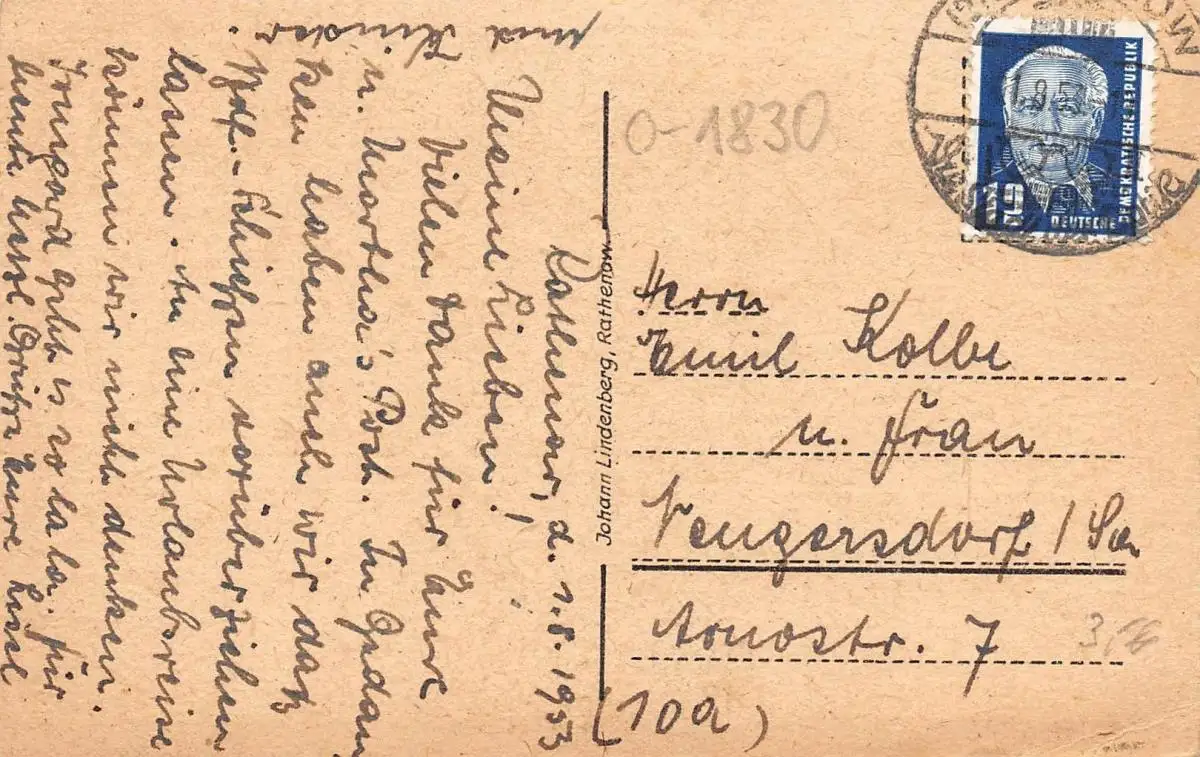 Rathenow, d. 1.8.1953
Meine Lieben!
Vielen Dank für Eure
u. Martha's Post. In Gedan
ken haben auch wir das
Vorüberziehen
lassen. An eine Urlaubsreise
können wir nicht denken.
Irmgard geht es so la la. Für
heute herzl. Grüße Eure Liesel
und Kinder.
Johann Lindenberg, Rathenow
O-1830
DEUTSCHE
DEMOKRATISCHE REPUBLIK
12
Herrn
Emil Kolbe
u. Frau
Neugersdorf / Sa
Arnostr. 7
(10a)